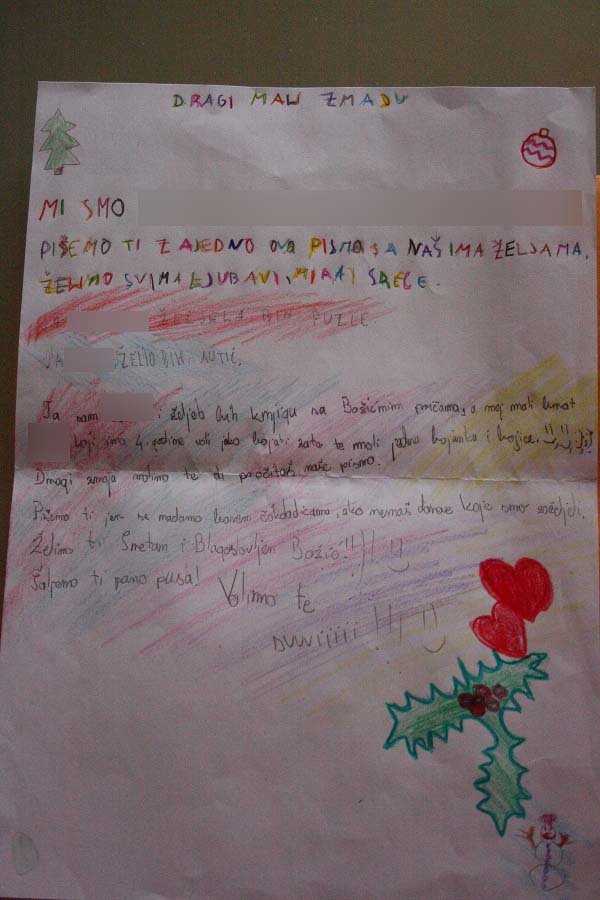 DRAGI MALI ZMAJU
MI SMO
PIŠEMO TI ZAJEDNO OVO PISMO SA NAŠIMA ŽELJAMA,
ŽELIMO SVIMA LJUBAVI, MIRA I SREĆE.
JA ŽELJELA BIH PUZLE.
JA ŽELIO BIH AUTIĆ.
Ja sam i željela bih knjigu sa Božićnim pričama, a moj mali brat
koji ima 4. godine voli jako bojati zato te moli jedna bojanka i bojice.!!
Dragi zmaju molimo te da pročitaš naše pismo.
Pišemo ti jer se nadamo barem čokoladicama, ako nemaš darove koje smo zaželjeli.
Želimo ti Sretan i Blagoslovljen Božić!!!
Šaljemo ti puno pusa! Volimo te
svvviiiiii!!!